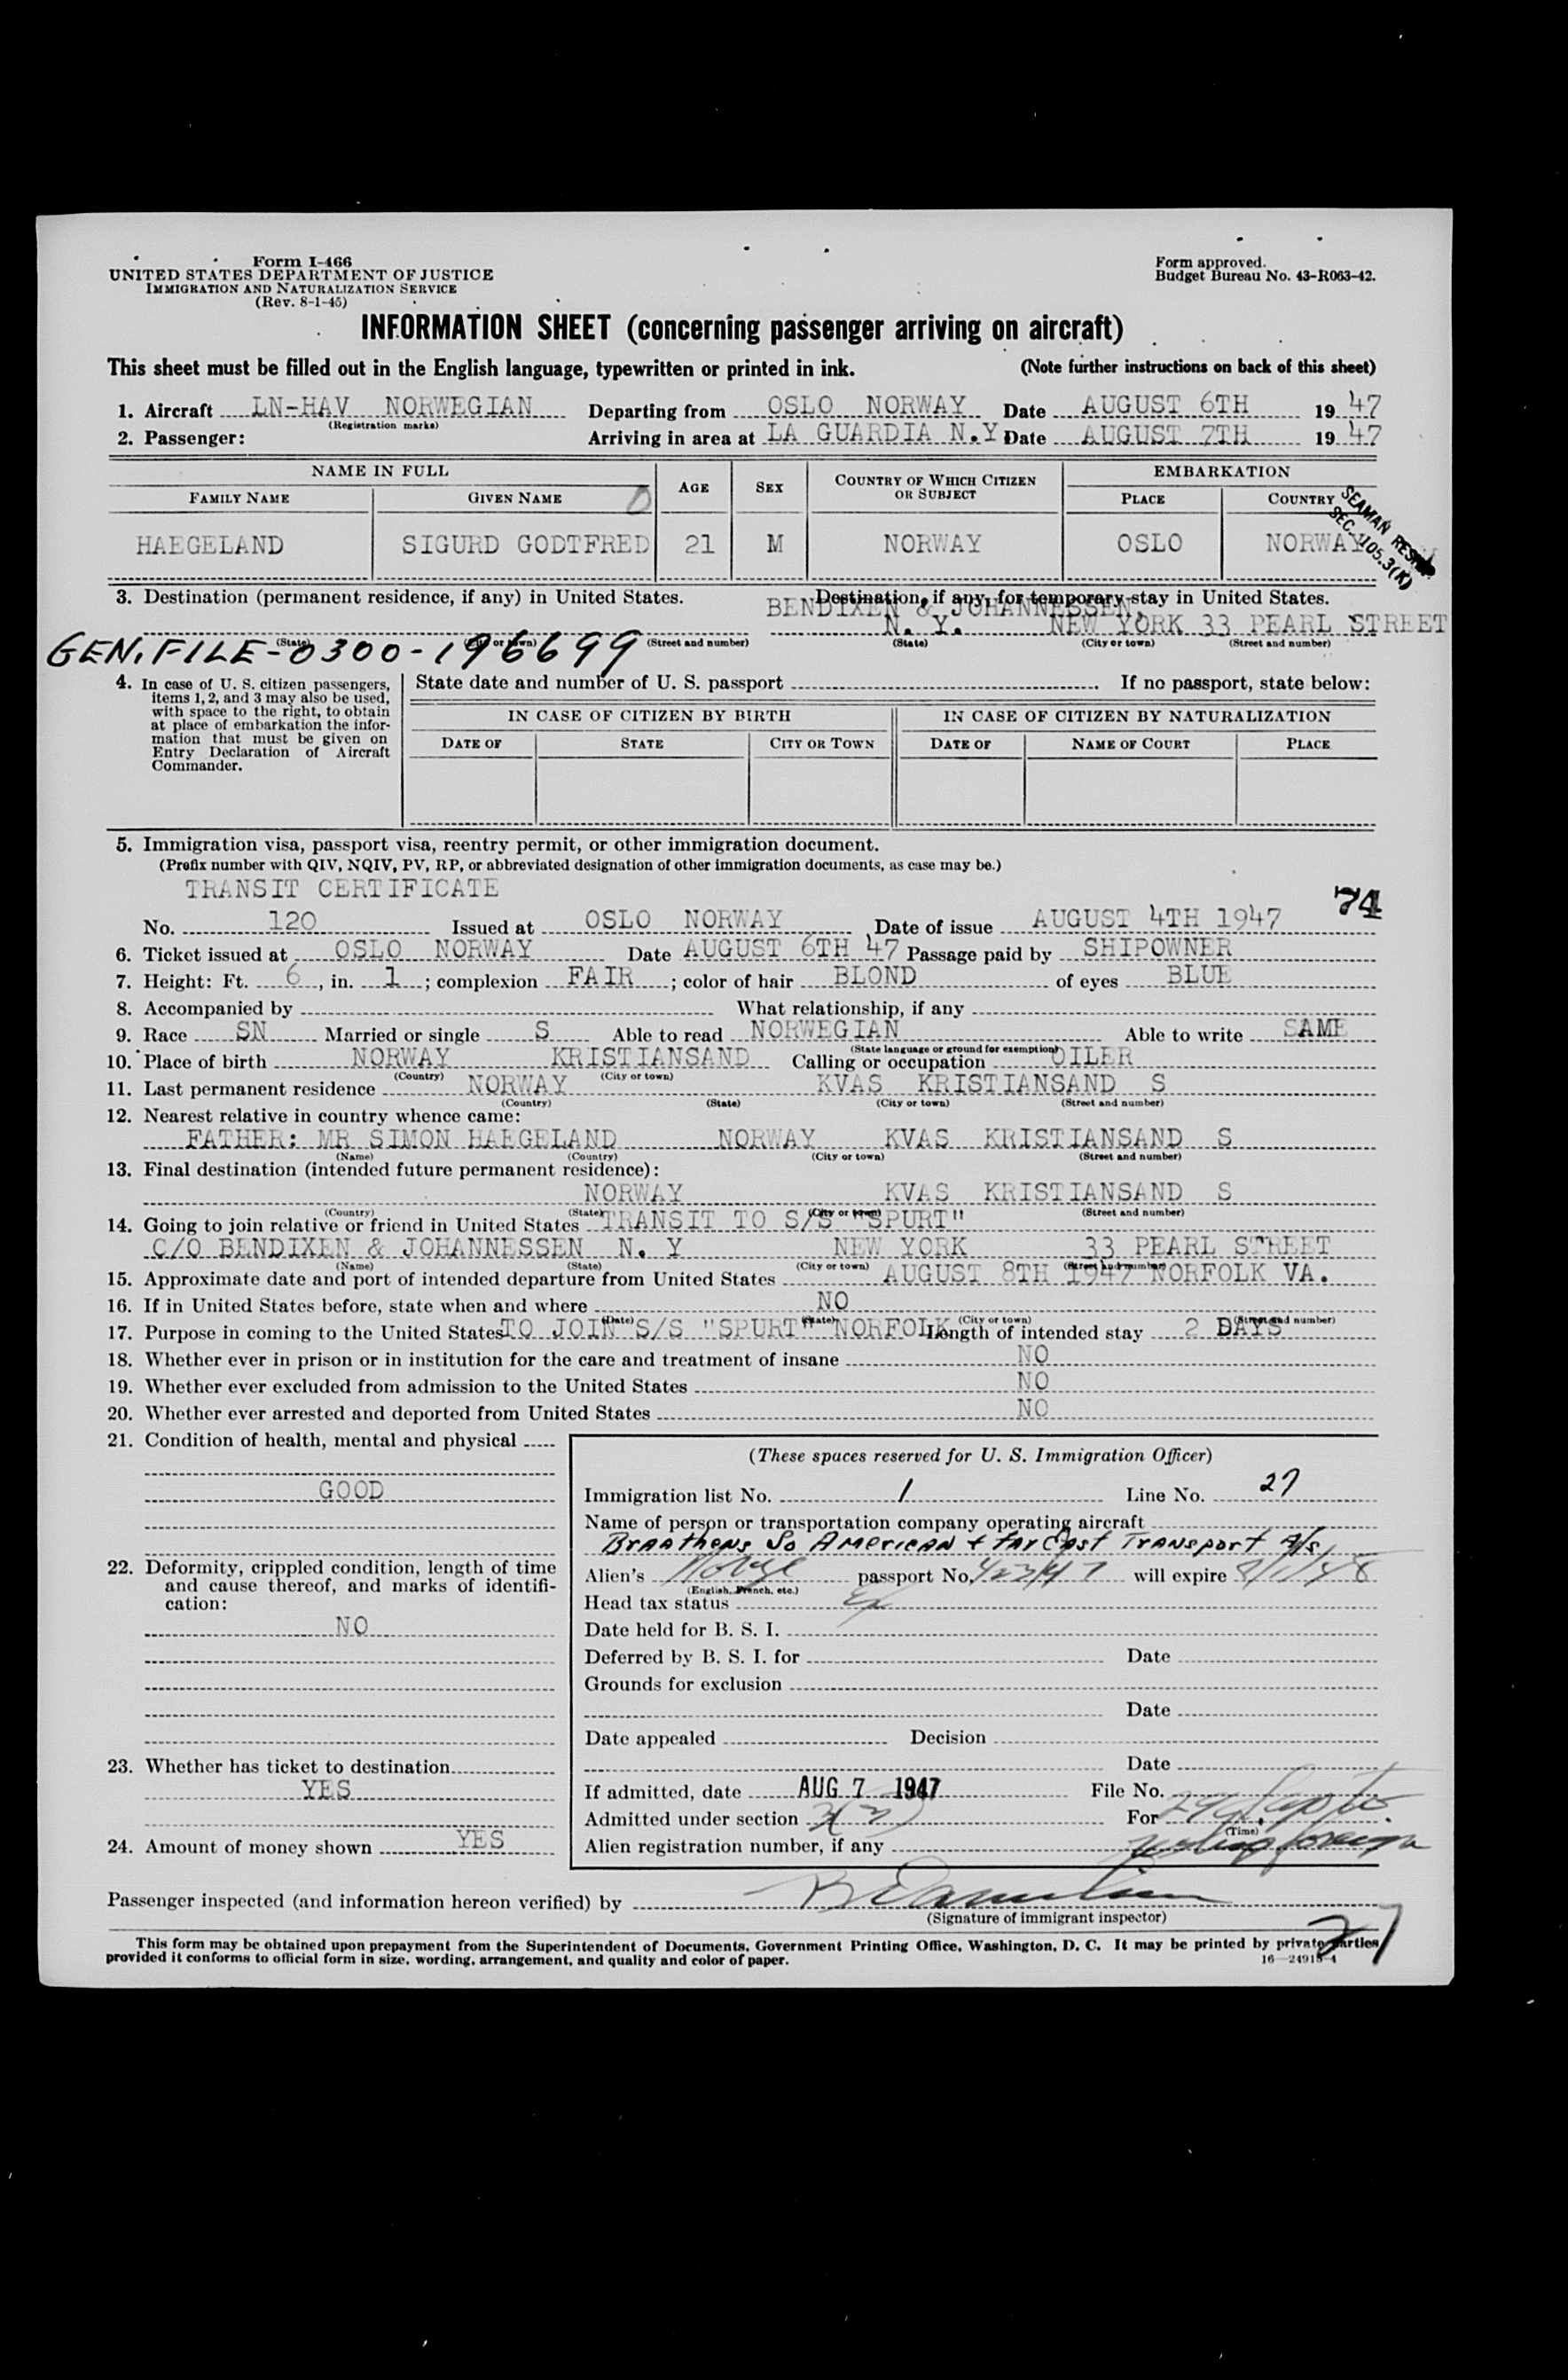 Form I-466
UNITED STATES DEPARTMENT OF JUSTICE
IMMIGRATION AND NATURALIZATION SERVICE
(Rev. 8-1-45)
Form approved.
Budget Bureau No. 43-R063-42.
INFORMATION SHEET (concerning passenger arriving on aircraft)
This sheet must be filled out in the English language, typewritten or printed in ink. (Note further instructions on back of this sheet)
1. Aircraft LN-HAV NORWEGIAN Departing from OSLO NORWAY Date AUGUST 6TH 19 47
(Registration marks)
2. Passenger: Arriving in area at LA GUARDIA N.Y Date AUGUST 7TH 19 47
NAME IN FULL AGE SEX COUNTRY OF WHICH CITIZEN OR SUBJECT EMBARKATION
FAMILY NAME GIVEN NAME PLACE COUNTRY
HAEGELAND SIGURD GODTFRED 21 M NORWAY OSLO NORWAY
SEAMAN
SEC. 105.3(K)
3. Destination (permanent residence, if any) in United States. Destination, if any, for temporary stay in United States.
BENDIXEN & JOHANNESSEN,
N. Y. NEW YORK 33 PEARL STREET
(State) (City or town) (Street and number) (State) (City or town) (Street and number)
GEN. FILE-0300-196699
4. In case of U. S. citizen passengers, items 1, 2, and 3 may also be used, with space to the right, to obtain at place of embarkation the information that must be given on Entry Declaration of Aircraft Commander.
State date and number of U. S. passport If no passport, state below:
IN CASE OF CITIZEN BY BIRTH IN CASE OF CITIZEN BY NATURALIZATION
DATE OF STATE CITY OR TOWN DATE OF NAME OF COURT PLACE
5. Immigration visa, passport visa, reentry permit, or other immigration document.
(Prefix number with QIV, NQIV, PV, RP, or abbreviated designation of other immigration documents, as case may be.)
TRANSIT CERTIFICATE
74
No. 120 Issued at OSLO NORWAY Date of issue AUGUST 4TH 1947
6. Ticket issued at OSLO NORWAY Date AUGUST 6TH 47 Passage paid by SHIPOWNER
7. Height: Ft. 6, in. 1; complexion FAIR; color of hair BLOND of eyes BLUE
8. Accompanied by What relationship, if any
9. Race SN Married or single S Able to read NORWEGIAN Able to write SAME
(State language or ground for exemption)
10. Place of birth NORWAY KRISTIANSAND Calling or occupation OILER
(Country) (City or town)
11. Last permanent residence NORWAY KVAS KRISTIANSAND S
(Country) (State) (City or town) (Street and number)
12. Nearest relative in country whence came:
FATHER: MR SIMON HAEGELAND NORWAY KVAS KRISTIANSAND S
(Name) (Country) (City or town) (Street and number)
13. Final destination (intended future permanent residence):
NORWAY KVAS KRISTIANSAND S
(Country) (State) (City or town) (Street and number)
14. Going to join relative or friend in United States TRANSIT TO S/S "SPURT"
C/O BENDIXEN & JOHANNESSEN N. Y NEW YORK 33 PEARL STREET
(Name) (State) (City or town) (Street and number)
15. Approximate date and port of intended departure from United States AUGUST 8TH 1947 NORFOLK VA.
16. If in United States before, state when and where NO
(Date) (State) (City or town) (Street and number)
17. Purpose in coming to the United States TO JOIN S/S "SPURT" NORFOLK Length of intended stay 2 DAYS
18. Whether ever in prison or in institution for the care and treatment of insane NO
19. Whether ever excluded from admission to the United States NO
20. Whether ever arrested and deported from United States NO
21. Condition of health, mental and physical
GOOD
22. Deformity, crippled condition, length of time and cause thereof, and marks of identification:
NO
23. Whether has ticket to destination
YES
24. Amount of money shown YES
(These spaces reserved for U. S. Immigration Officer)
Immigration list No. 1 Line No. 27
Name of person or transportation company operating aircraft
Braathens So American & Far East Transport A/s
Alien's passport No. will expire
(English, French, etc.)
Head tax status
Date held for B. S. I.
Deferred by B. S. I. for Date
Grounds for exclusion
Date
Date appealed Decision
Date
If admitted, date AUG 7 1947 File No.
Admitted under section 3(3) For
(Time)
Alien registration number, if any
Passenger inspected (and information hereon verified) by
(Signature of immigrant inspector)
27
This form may be obtained upon prepayment from the Superintendent of Documents, Government Printing Office, Washington, D. C. It may be printed by private parties
provided it conforms to official form in size, wording, arrangement, and quality and color of paper. 16—24915-4